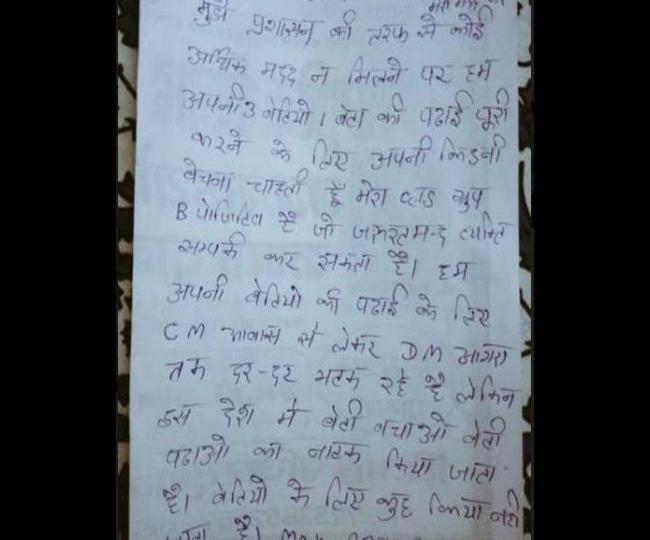 मुझे प्रशासन की तरफ से कोई
आर्थिक मदद न मिलने पर हम
अपनी 3 बेटियो 1 बेटा की पढाई पूरी
करने के लिए अपनी किडनी
बेचना चाहती हूँ मेरा ब्लड ग्रुप
B पोजिटिव है जो जरूरतमन्द व्यक्ति
सम्पर्क कर सकता है। हम
अपनी बेटियो की पढाई के लिए
CM आवास से लेकर DM आगरा
तक दर-दर भटक रहे है लेकिन
इस देश मे बेटी बचाओ बेटी
पढाओ का नाटक किया जाता
है। बेटियो के लिए कुछ किया नही
जाता है।